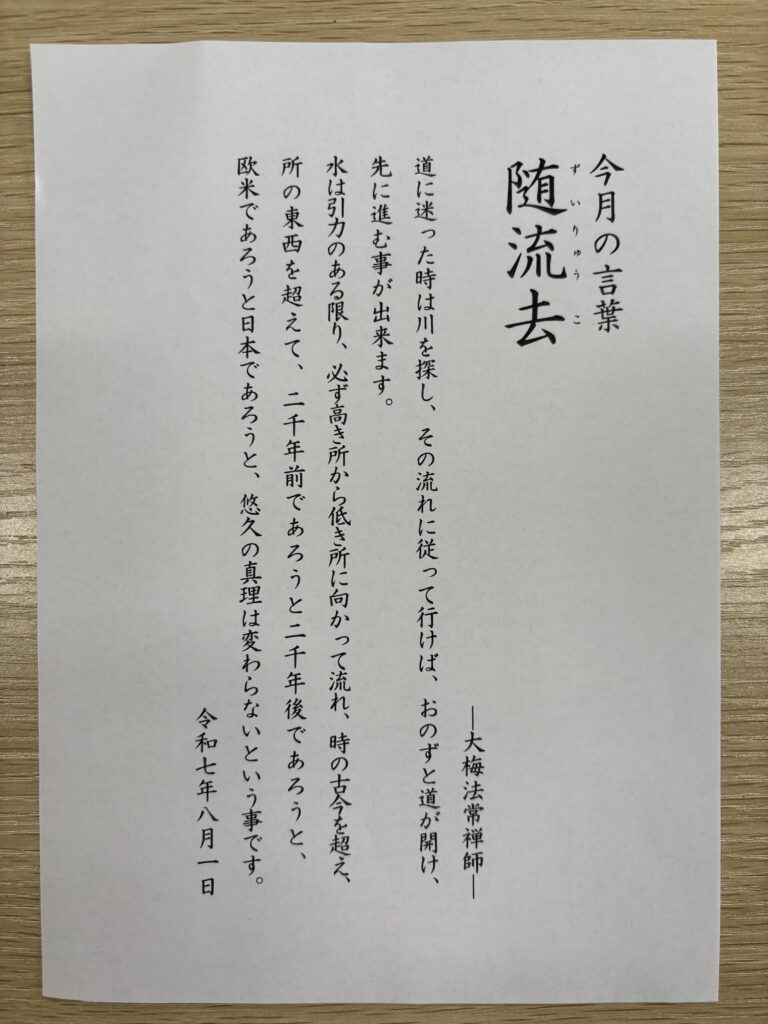 今月の言葉
ずいりゅうこ
随流去
―大梅法常禅師―
道に迷った時は川を探し、その流れに従って行けば、おのずと道が開け、
先に進む事が出来ます。
水は引力のある限り、必ず高き所から低き所に向かって流れ、時の古今を超え、
所の東西を超えて、二千年前であろうと二千年後であろうと、
欧米であろうと日本であろうと、悠久の真理は変わらないという事です。
令和七年八月一日